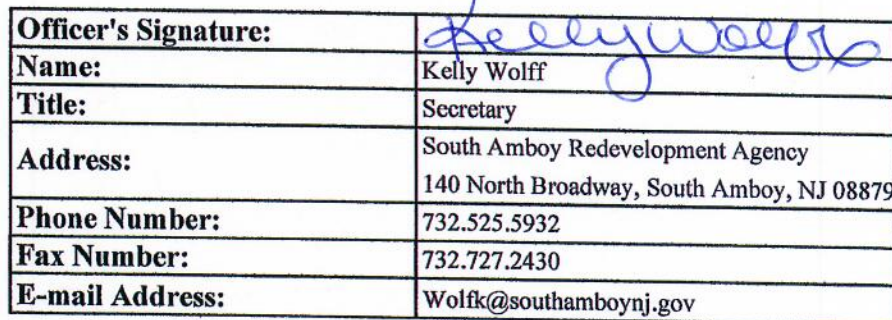 Officer's Signature: Kelly Wolff
Name: Kelly Wolff
Title: Secretary
Address: South Amboy Redevelopment Agency
140 North Broadway, South Amboy, NJ 08879
Phone Number: 732.525.5932
Fax Number: 732.727.2430
E-mail Address: Wolfk@southamboynj.gov